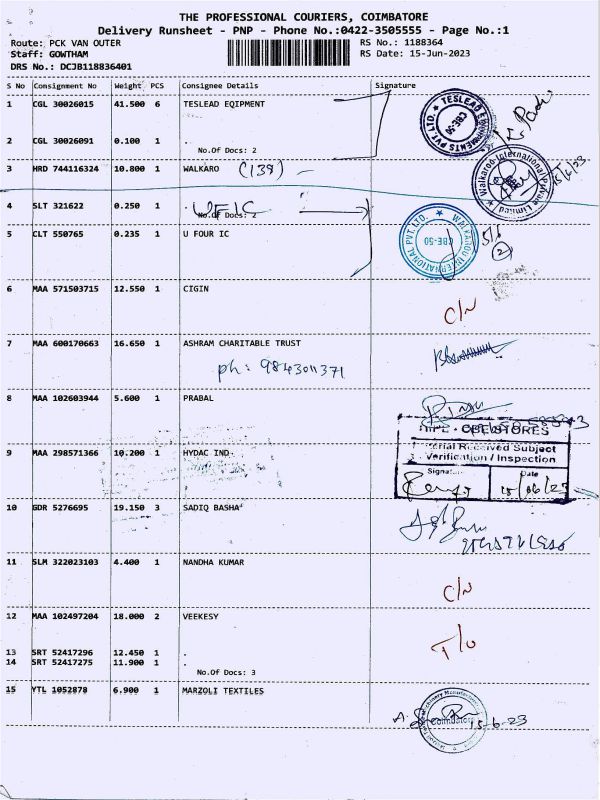 THE PROFESSIONAL COURIERS, COIMBATORE
Delivery Runsheet - PNP - Phone No.:0422-3505555 - Page No.:1
Route: PCK VAN OUTER RS No.: 1188364
Staff: GOWTHAM RS Date: 15-Jun-2023
DRS No.: DCJB118836401
S No Consignment No Weight PCS Consignee Details Signature
1 CGL 30026015 41.500 6 TESLEAD EQIPMENT
TESLEAD EQUIPMENTS PVT. LTD. CBE-50
2 CGL 30026091 0.100 1 .
No.Of Docs: 2
3 HRD 744116324 10.800 1 WALKARO (138)
Walkaroo International Private Limited 15/6/23
4 SLT 321622 0.250 1 .
No.Of Docs: 2 UFIC
WALKAROO INTERNATIONAL PVT. LTD. CBE-50
5 CLT 550765 0.235 1 U FOUR IC
(2)
6 MAA 571503715 12.550 1 CIGIN
C/N
7 MAA 600170663 16.650 1 ASHRAM CHARITABLE TRUST
ph: 9843011371
8 MAA 102603944 5.600 1 PRABAL
CBE STORES
Material Received Subject
Verification / Inspection
9 MAA 298571366 10.200 1 HYDAC IND
Signature Date
15/06/23
10 GDR 5276695 19.150 3 SADIQ BASHA
11 SLM 322023103 4.400 1 NANDHA KUMAR
C/N
12 MAA 102497204 18.000 2 VEEKESY
T/O
13 SRT 52417296 12.450 1 .
14 SRT 52417275 11.900 1 .
No.Of Docs: 3
15 YTL 1052878 6.900 1 MARZOLI TEXTILES
Coimbatore 15-6-23